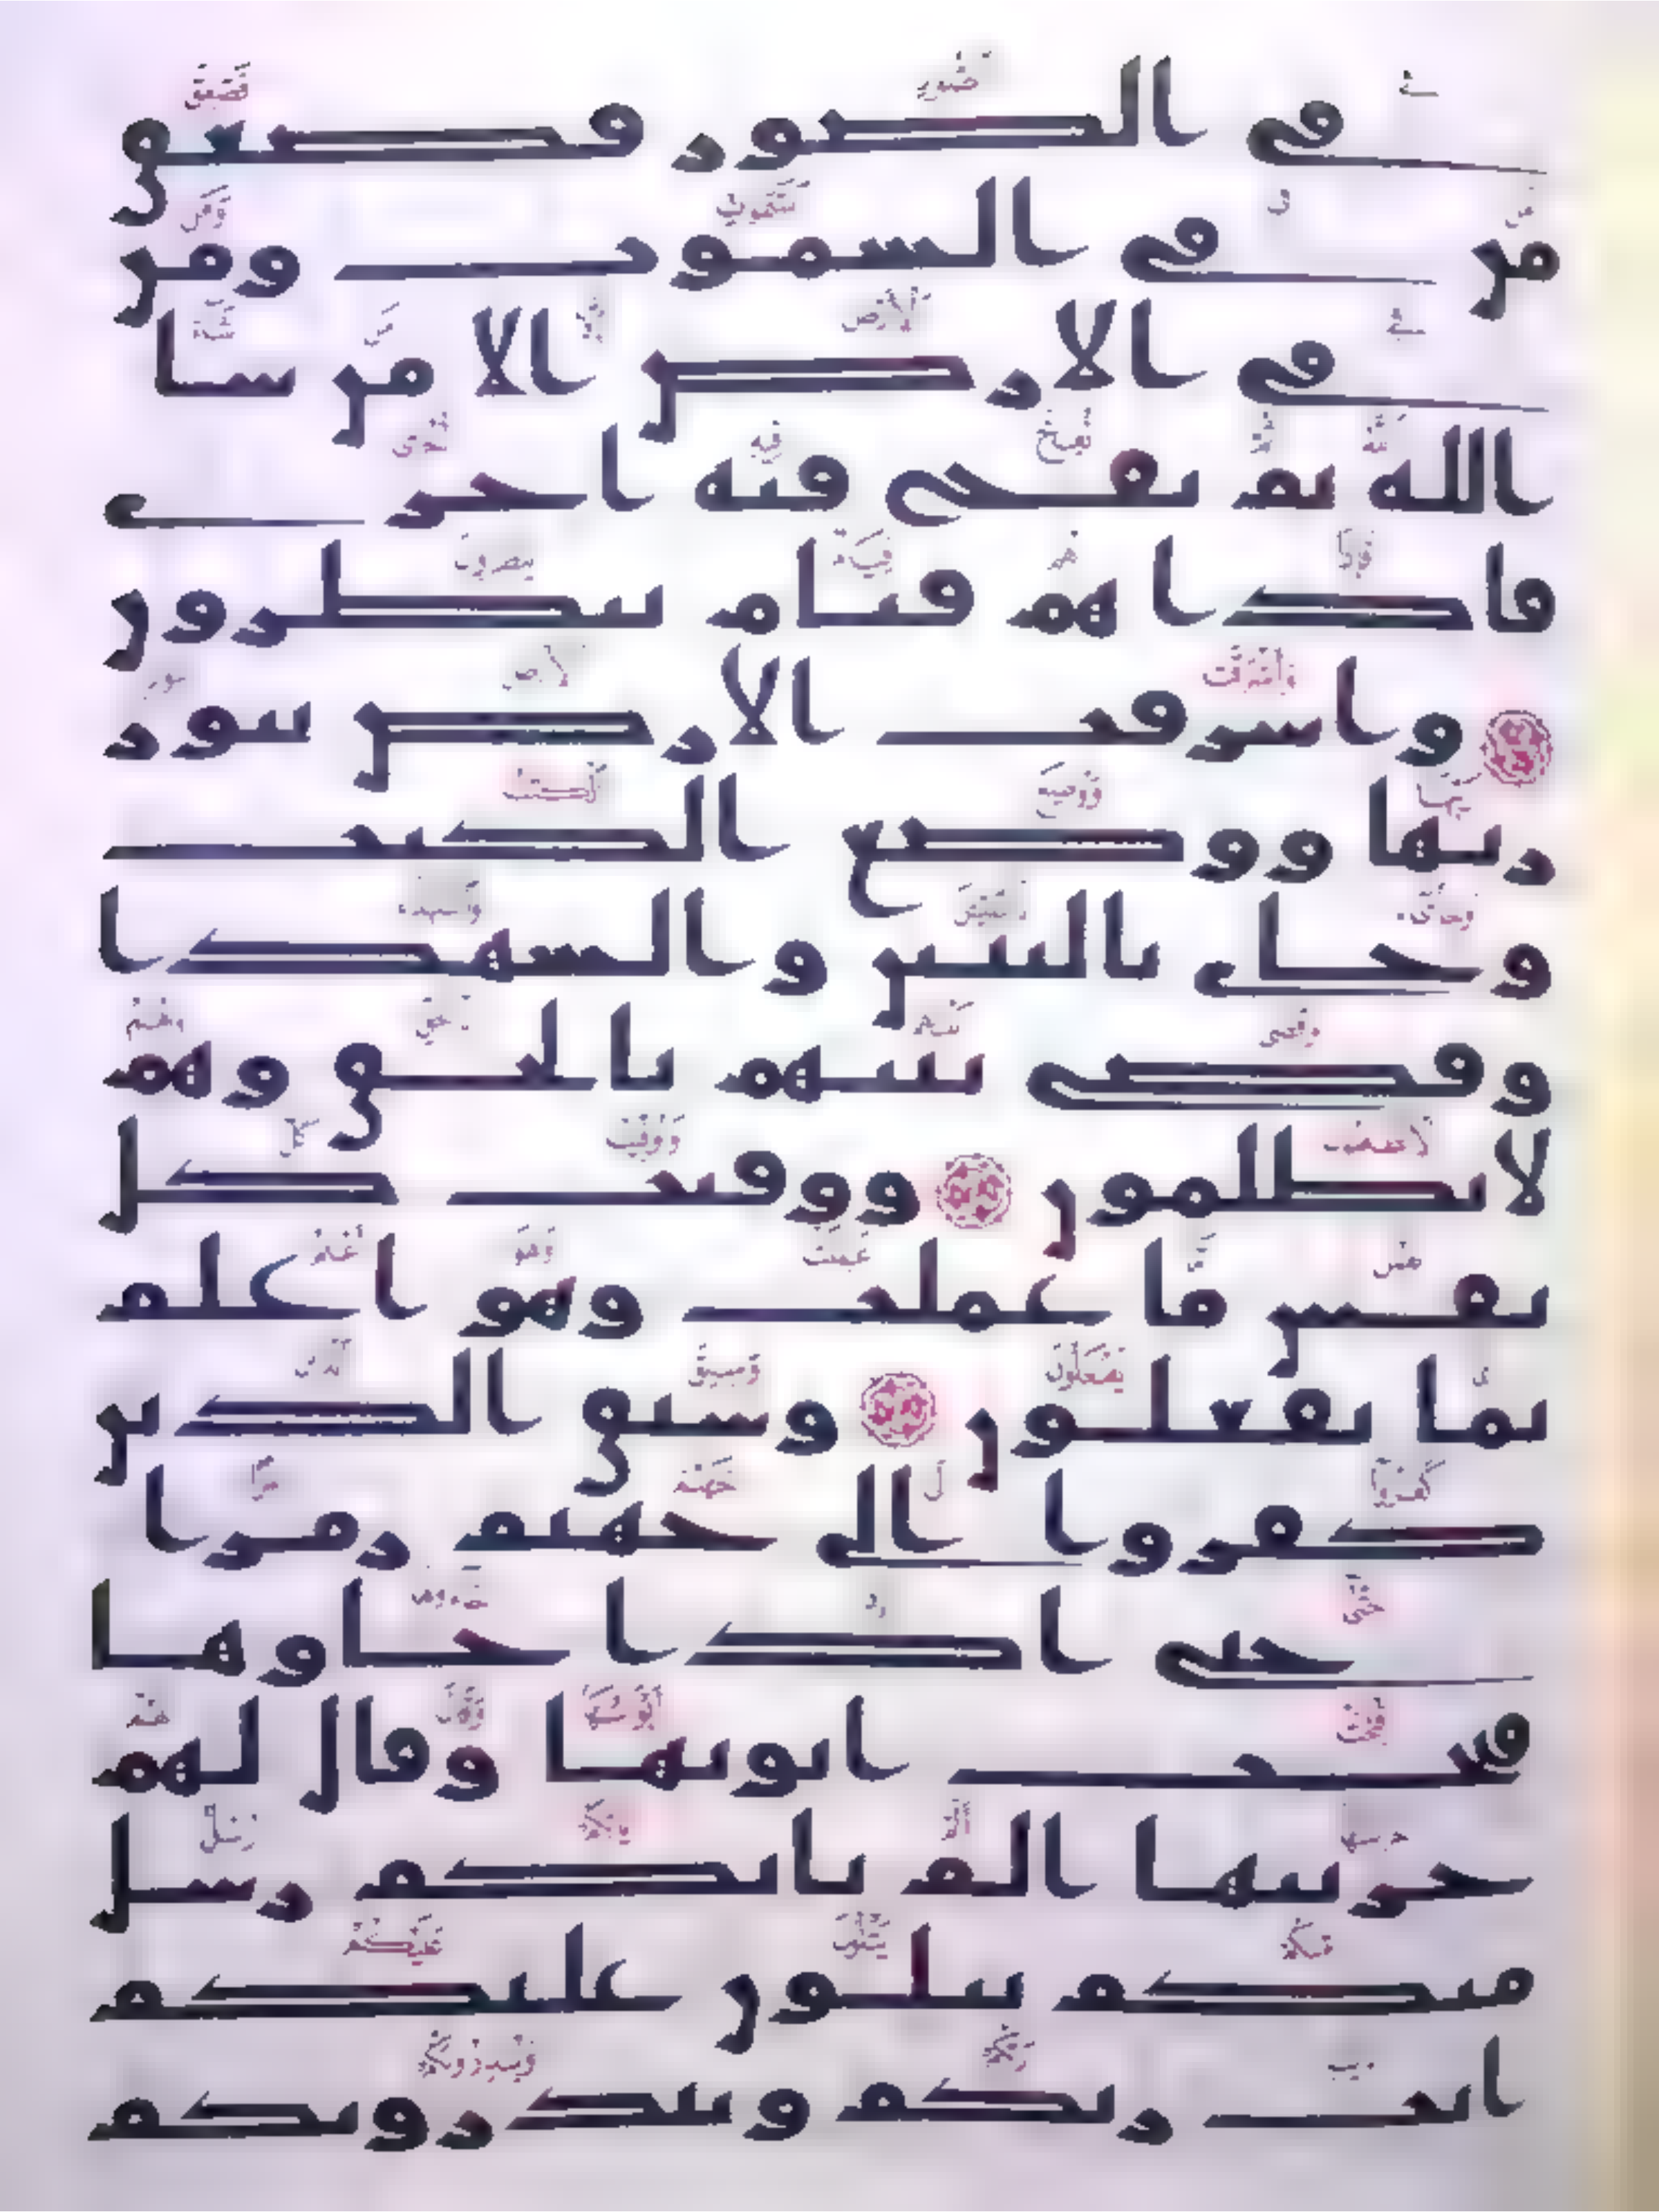 في الصور فصعق
من في السموت ومن
في الارض الا من شا
الله ثم نفخ فيه اخرى
فاذا هم قيام ينظرون
واشرقت الارض بنور
ربها ووضع الكتب
وجاى بالنبين والشهدا
وقضى بينهم بالحق وهم
لا يظلمون ووفيت كل
نفس ما عملت وهو اعلم
بما يفعلون وسيق الذين
كفروا الى جهنم زمرا
حتى اذا جاوها
فتحت ابوبها وقال لهم
خزنتها الم ياتكم رسل
منكم يتلون عليكم
ايت ربكم وينذرونكم